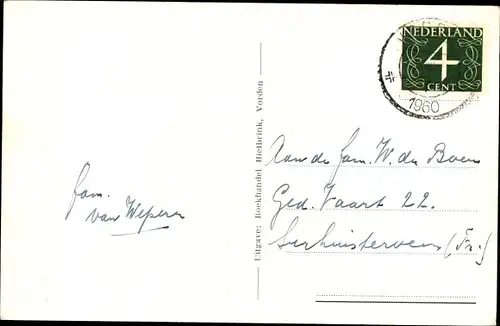 NEDERLAND
4
CENT
1960
Uitgave: Boekhandel Hietbrink, Vorden
fam.
van Weperen
Aan de fam. W. de Boer
Ged. Vaart 22.
Surhuisterveen (Fr.)